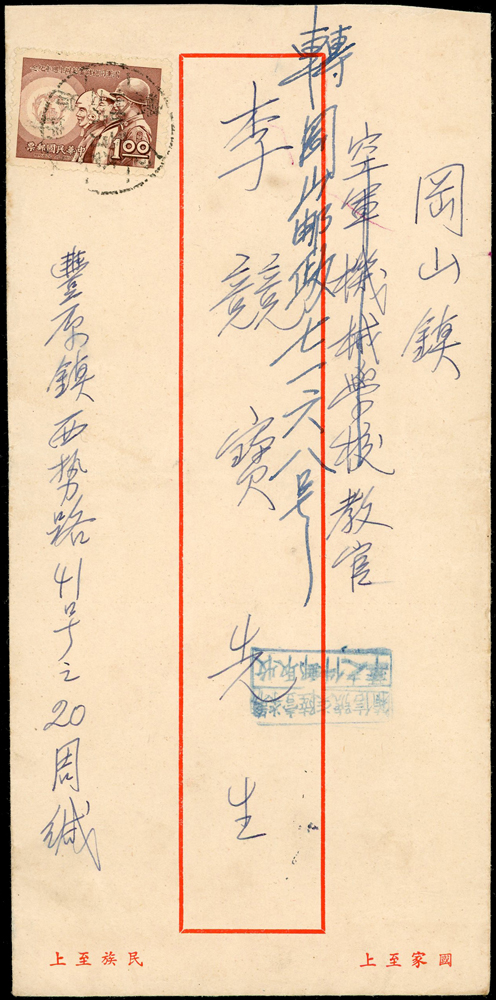 岡山鎮
空軍機械學校教官
轉岡山郵政七一六八号
李競寶先生
豐原鎮西勢路41号之20周緘
1.00
票郵國民華中
國家至上
民族至上